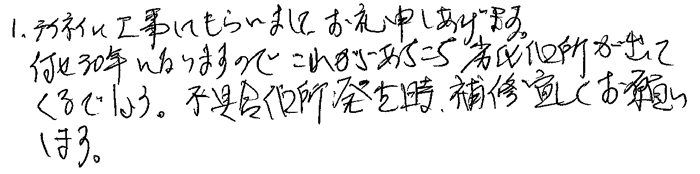 1. テイネイに工事してもらいまして、お礼申しあげます。
何せ30年になりますので これからあちこち 劣化個所が出て
くるでしょう。不具合個所発生時、補修宜しくお願いし
します。